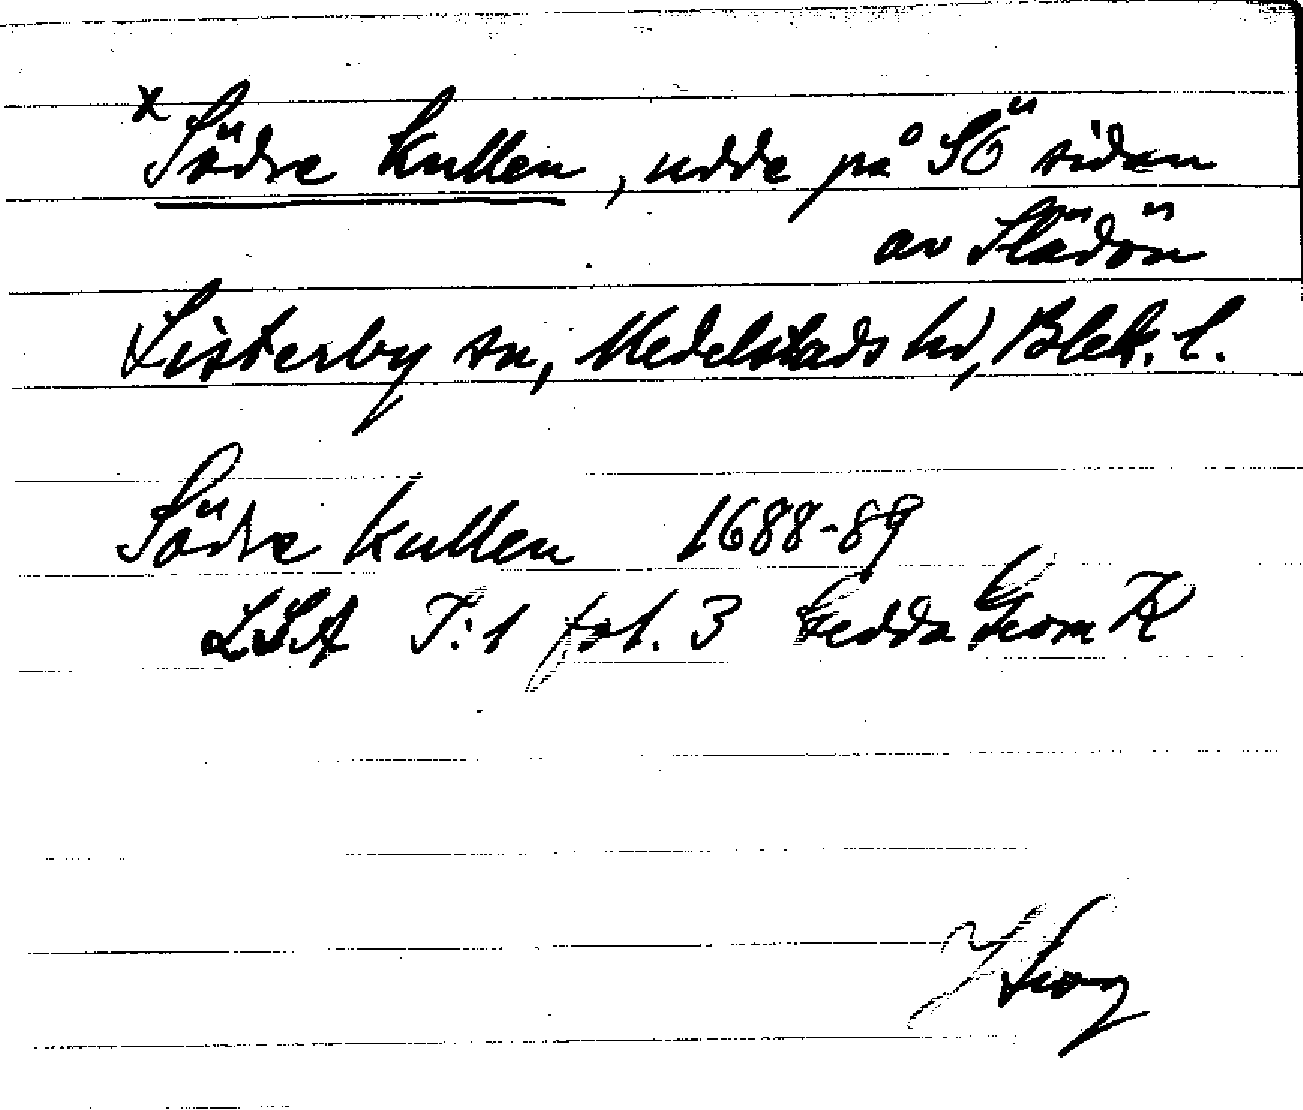 x Södre Kullen, udde på SÖ sidan
av Slädön
Listerby sn, Medelstads hd, Blek. l.
Södre Kullen 1688-89
LSA T:1 fol. 3 Gedda Grom K